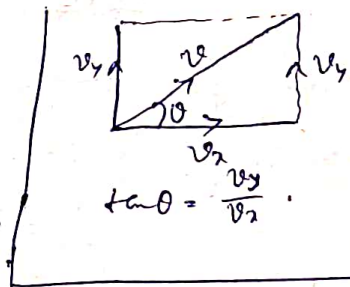 v_y v v_y
θ
v_x
tan θ = v_y / v_x .